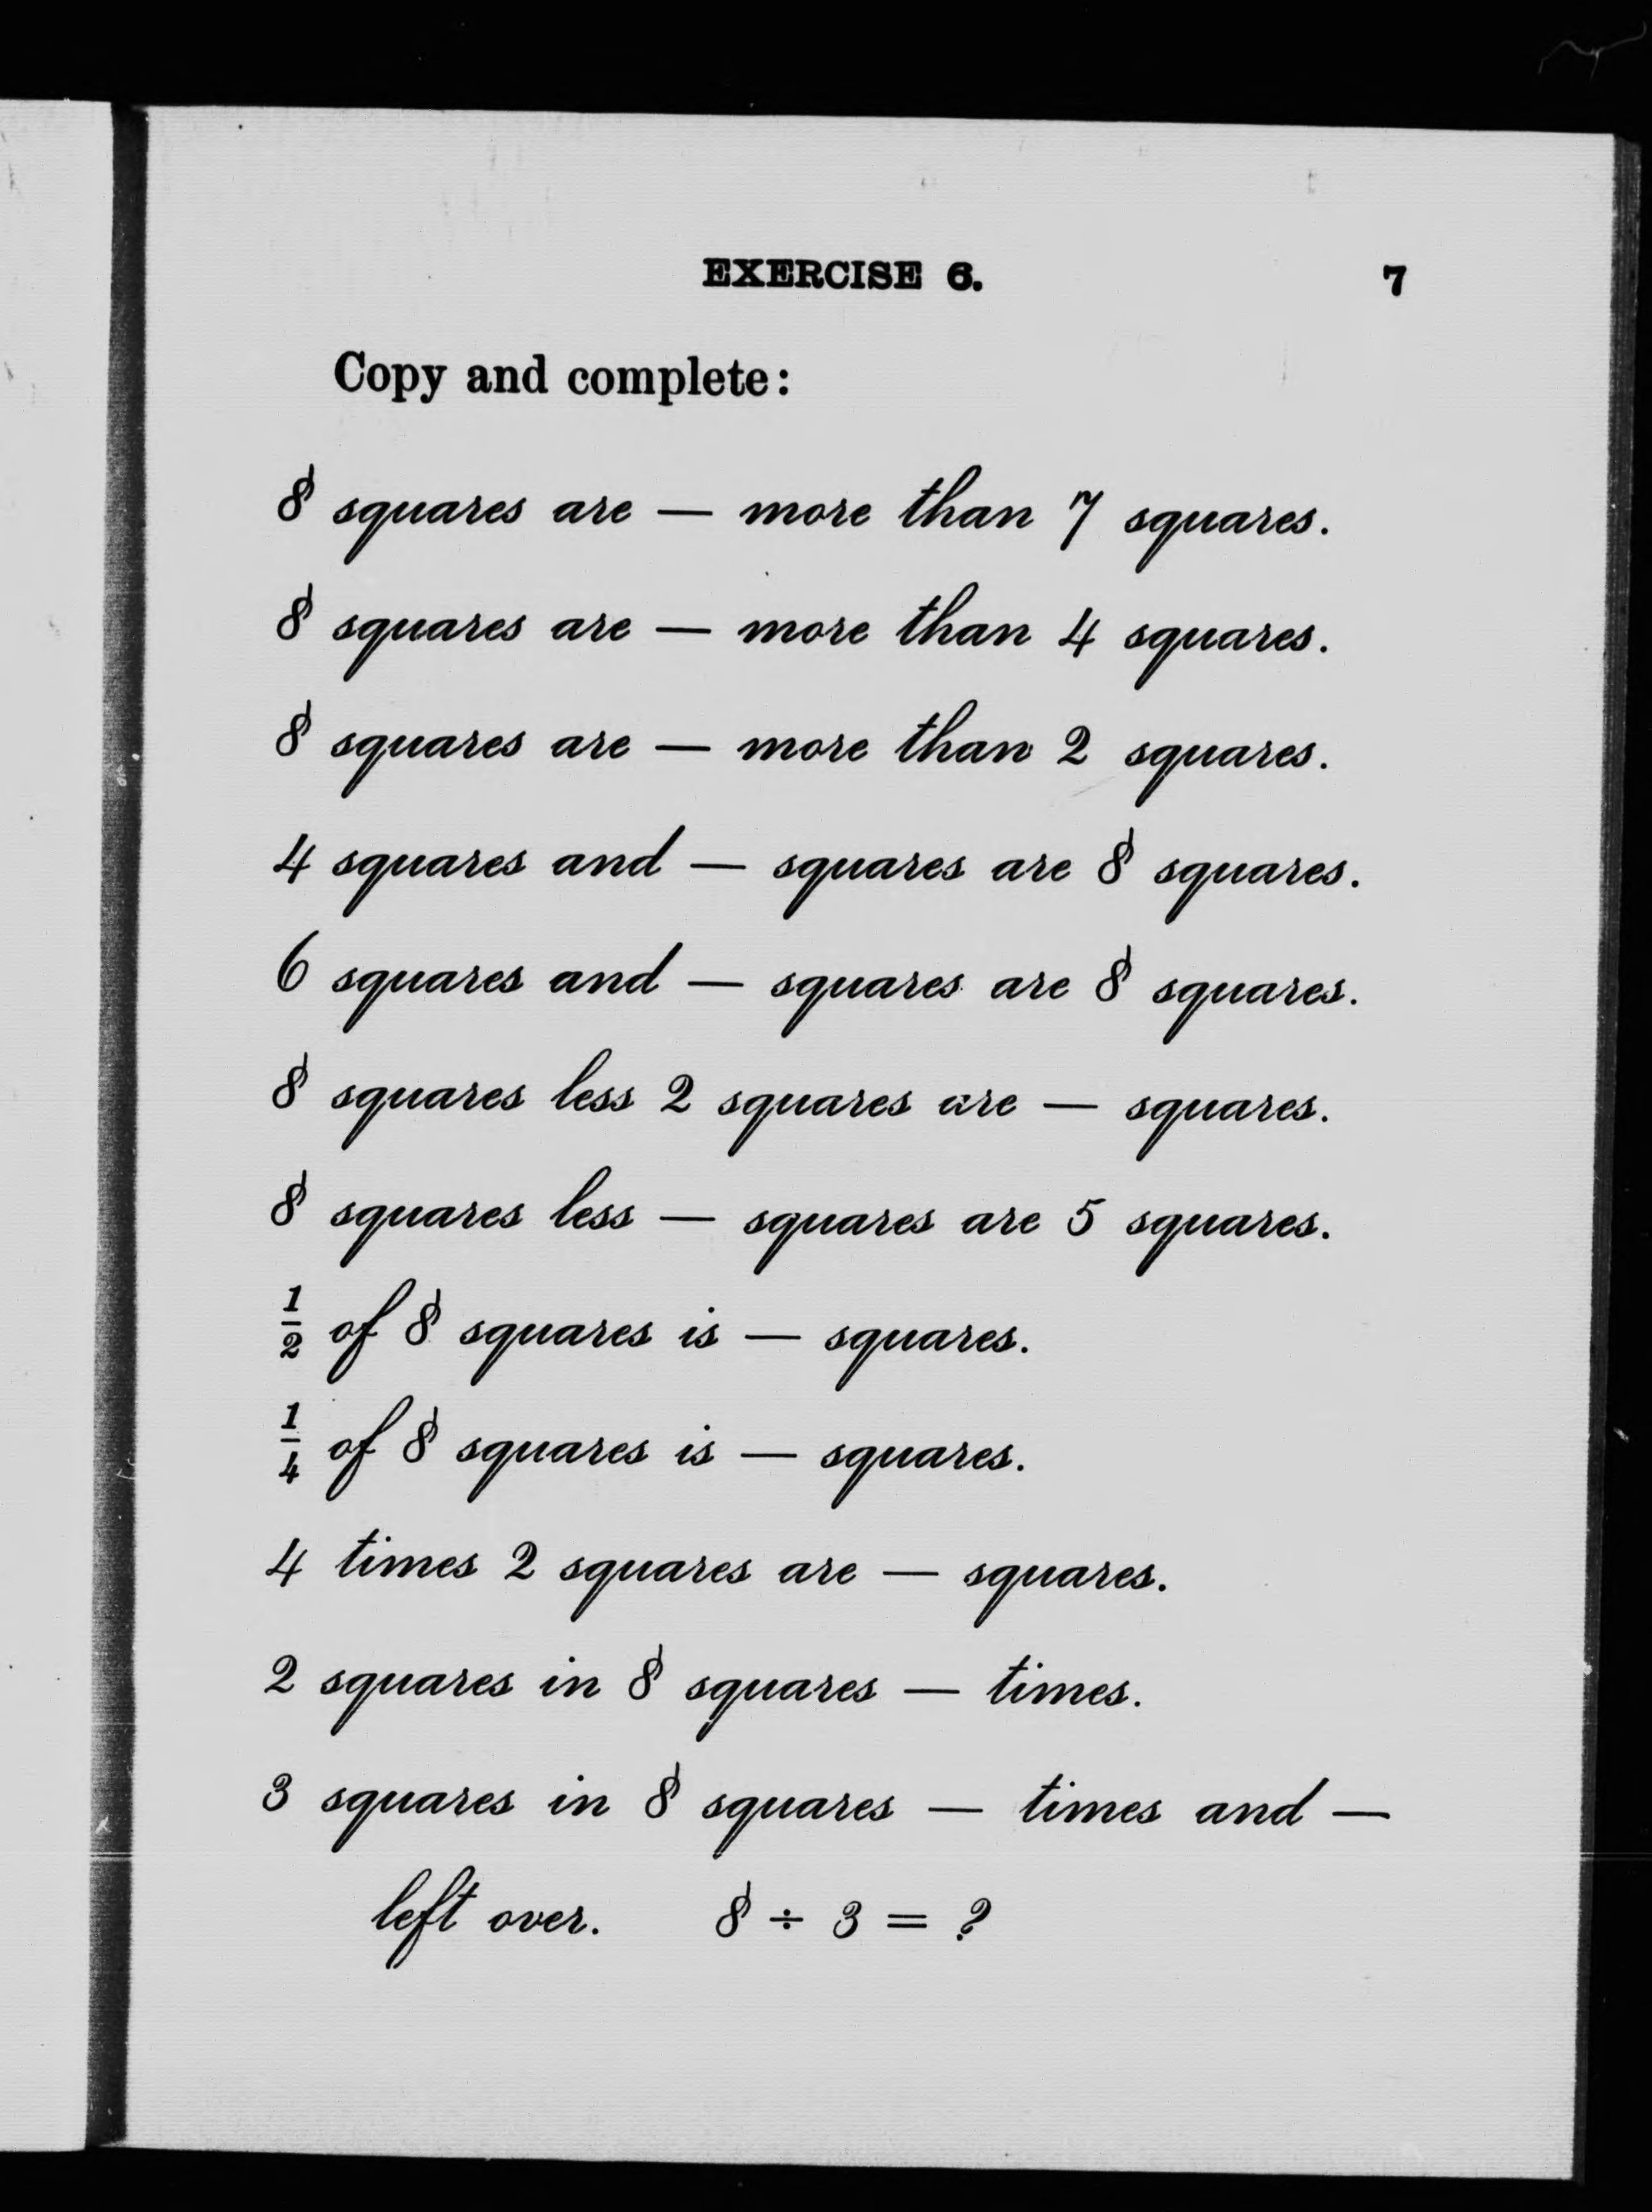 EXERCISE 6. 7
Copy and complete:
8 squares are — more than 7 squares.
8 squares are — more than 4 squares.
8 squares are — more than 2 squares.
4 squares and — squares are 8 squares.
6 squares and — squares are 8 squares.
8 squares less 2 squares are — squares.
8 squares less — squares are 5 squares.
1/2 of 8 squares is — squares.
1/4 of 8 squares is — squares.
4 times 2 squares are — squares.
2 squares in 8 squares — times.
3 squares in 8 squares — times and —
left over. 8 ÷ 3 = ?